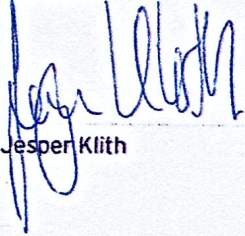 Jesper Klith